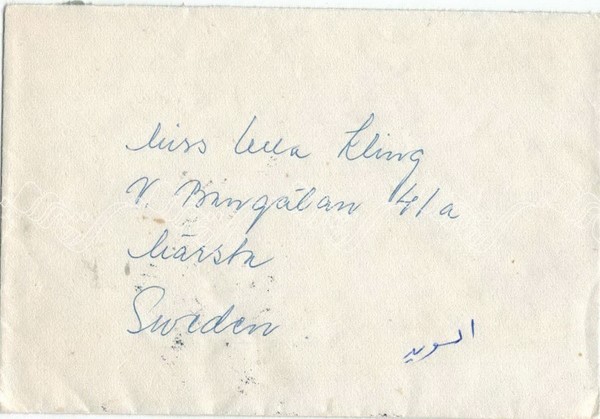 Miss Ulla Kling
V. Bangatan 4/a
Märsta
Sweden
السويد